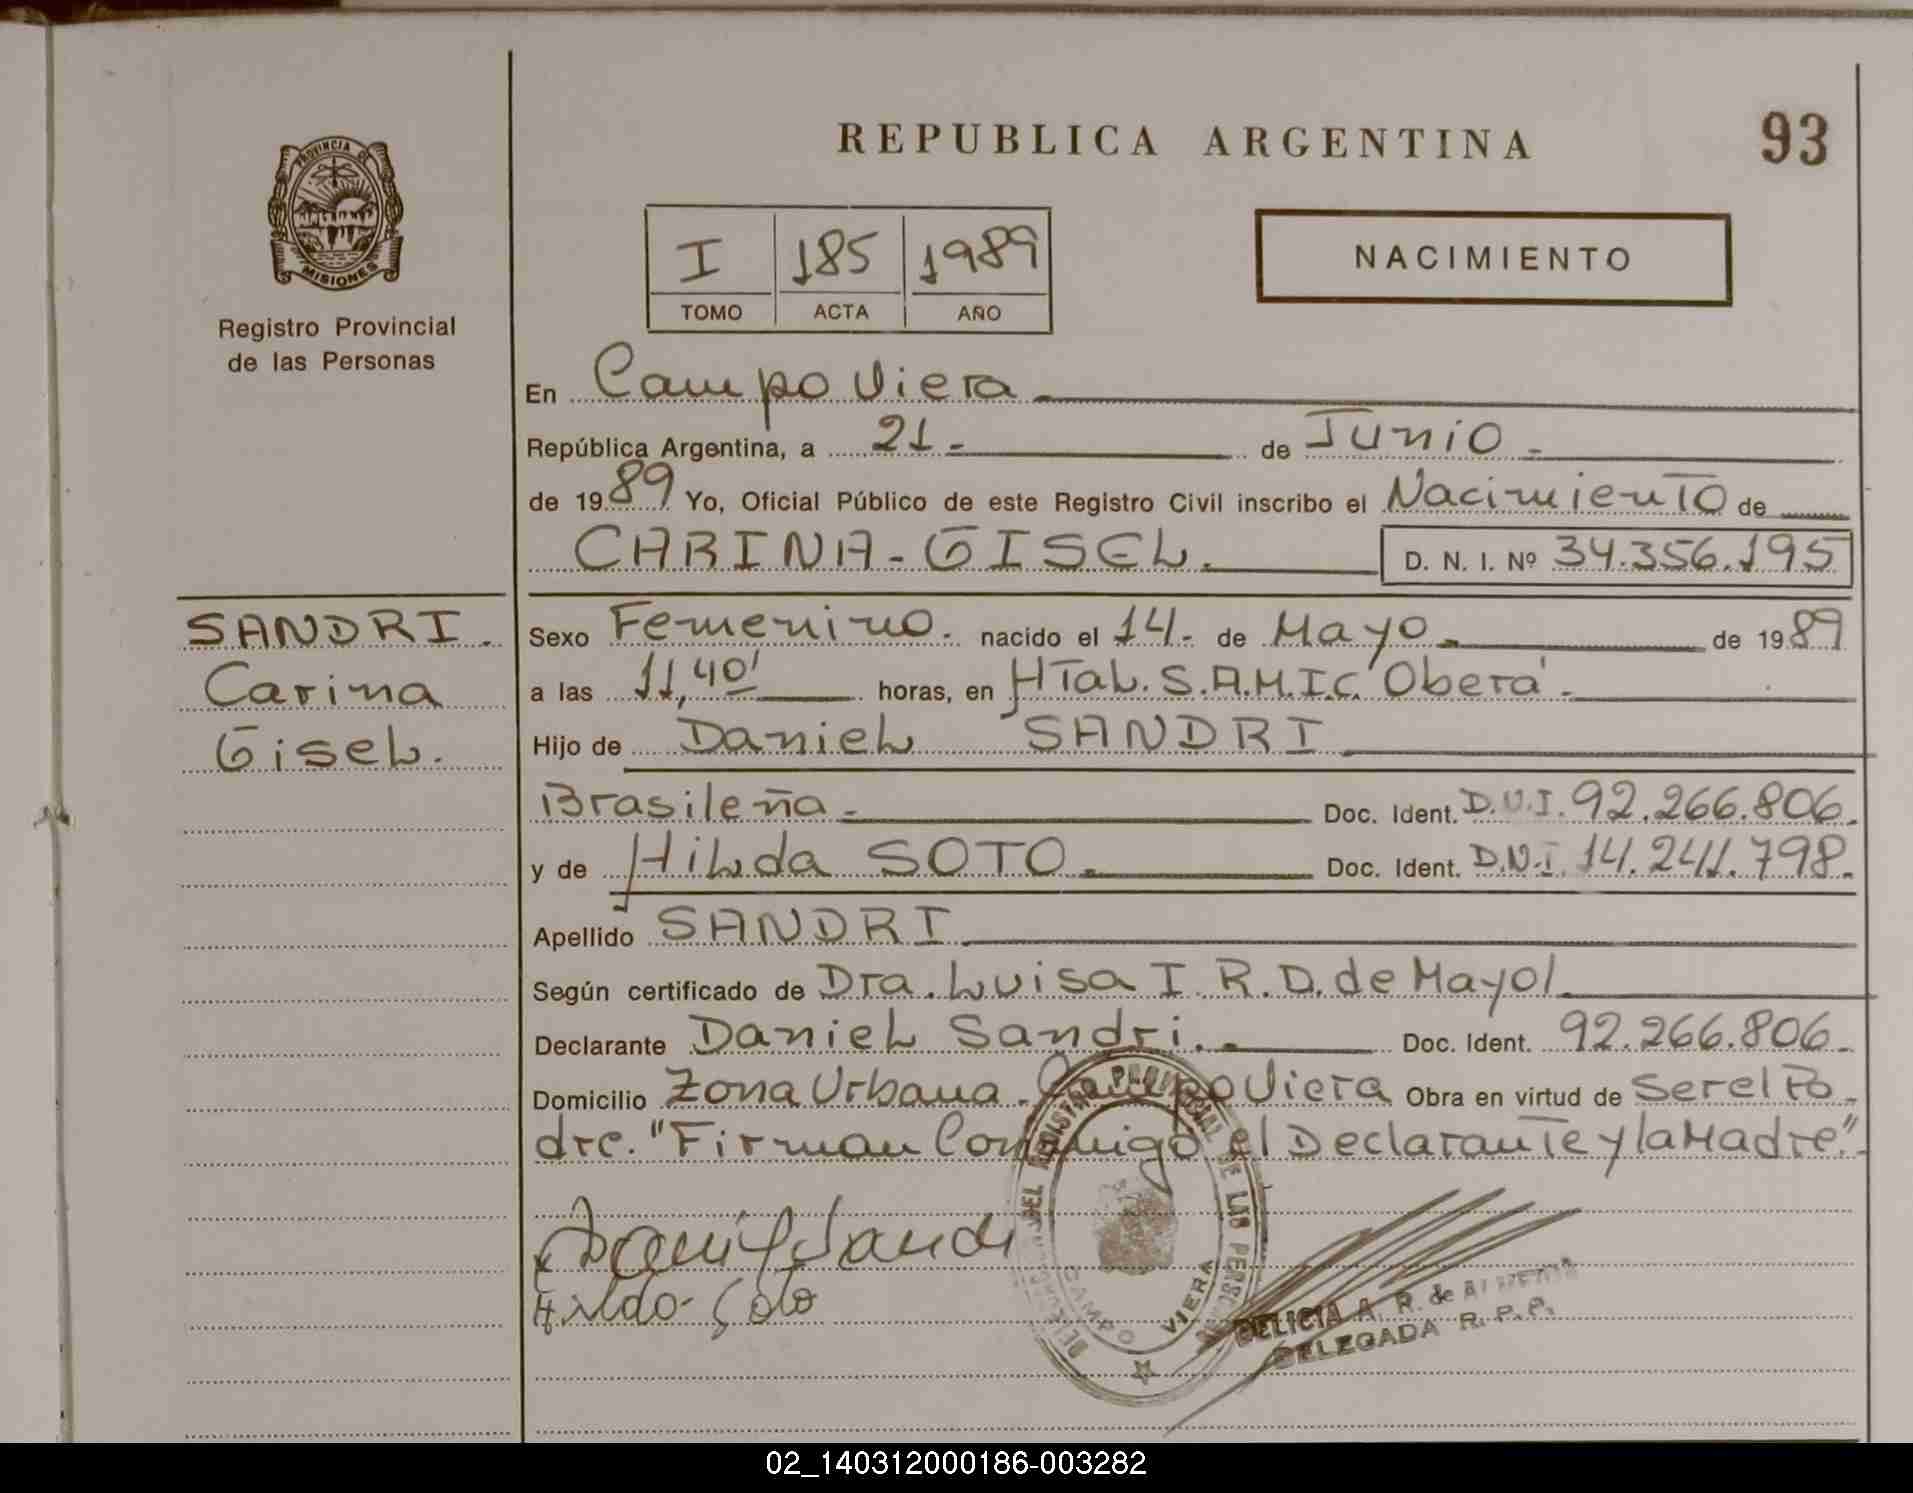 PROVINCIA DE
MISIONES
Registro Provincial
de las Personas
SANDRI.
Carina
Gisel.
REPUBLICA ARGENTINA
93
I 185 1989
TOMO ACTA AÑO
NACIMIENTO
En Campo Viera
República Argentina, a 21- de Junio
de 1989 Yo, Oficial Público de este Registro Civil inscribo el Nacimiento de
CARINA-GISEL. D. N. I. Nº 34.356.195
Sexo Femenino. nacido el 14- de Mayo de 1989
a las 11,40' horas, en HTal. S.A.M.I.C. Oberá.
Hijo de Daniel SANDRI
Brasileña Doc. Ident. D.N.I. 92.266.806.
y de Hilda SOTO Doc. Ident. D.N.I. 14.241.798.
Apellido SANDRI
Según certificado de Dra. Luisa I. R. D. de Mayol
Declarante Daniel Sandri. Doc. Ident. 92.266.806
Domicilio Zona Urbana. Campo Viera Obra en virtud de Ser el Pa-
dre. "Firman Conmigo el Declarante y la Madre."
Daniel Sandri
Hilda Soto
DEL REGISTRO PROVINCIAL DE LAS PERSONAS
CAMPO VIERA
DELICIA A. R. de ALMEIDA
DELEGADA R. P. P.
02_140312000186-003282